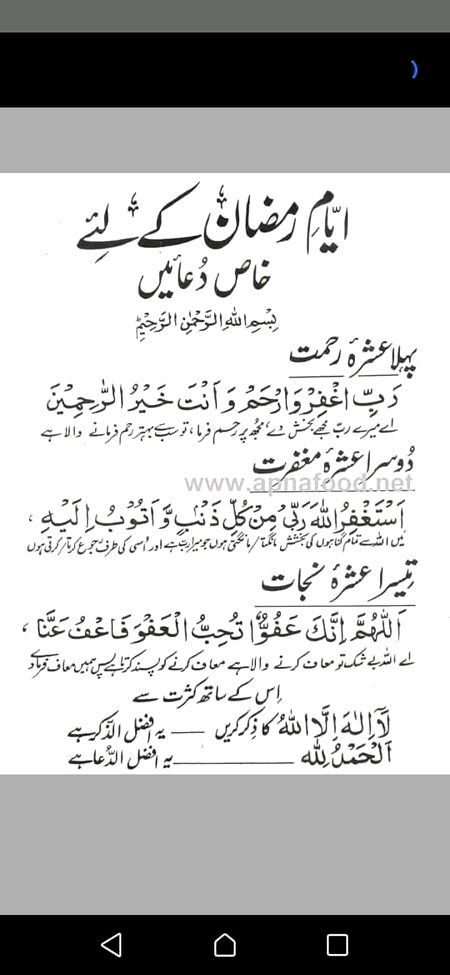 ایّامِ رمضان کے لئے
خاص دُعائیں
بِسْمِ اللهِ الرَّحْمٰنِ الرَّحِيْمِ
پہلا عشرۂ رحمت
رَبِّ اغْفِرْ وَارْحَمْ وَاَنْتَ خَيْرُ الرّٰحِمِيْنَ
اے میرے رب مجھے بخش دے، مجھ پر رحم فرما، تو سب سے بہتر رحم فرمانے والا ہے
دُوسرا عشرۂ مغفرت
www.apnafood.net
اَسْتَغْفِرُ اللهَ رَبِّيْ مِنْ كُلِّ ذَنْۢبٍ وَّاَتُوْبُ اِلَيْهِ ،
میں اللہ سے تمام گناہوں کی بخشش مانگتا/مانگتی ہوں جو میرا رب ہے اور اُسی کی طرف رجوع کرتا/کرتی ہوں
تیسرا عشرۂ نجات
اَللّٰهُمَّ اِنَّكَ عَفُوٌّ تُحِبُّ الْعَفْوَ فَاعْفُ عَنَّا ،
اے اللہ بے شک تو معاف کرنے والا ہے معاف کرنے کو پسند کرتا ہے پس ہمیں معاف فرما دے
اِس کے ساتھ کثرت سے
لَآ اِلٰهَ اِلَّا اللهُ کا ذِکر کریں —— یہ افضل الذّکر ہے
اَلْحَمْدُ لِلّٰهِ ———————— یہ افضل الدُّعا ہے